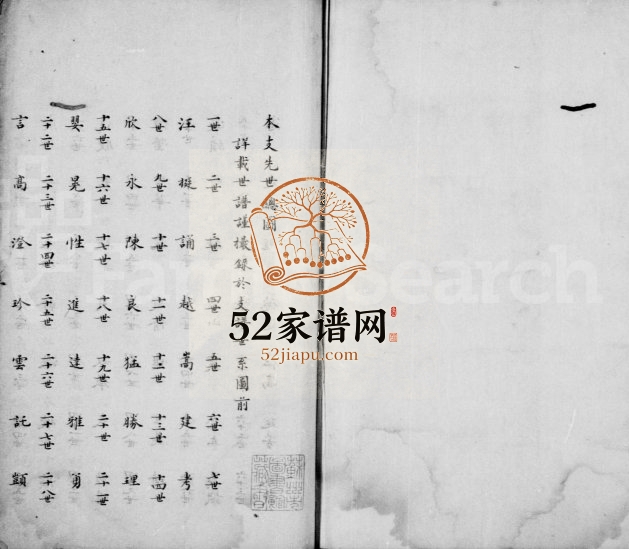 本支先世圖
詳載世譜謹錄於支系圖前
一世 二世 三世 四世 五世 六世 七世
汪 挺 誦 越 嵩 建 考
八世 九世 十世 十一世 十二世 十三世 十四世
欣 永 陳 良 猛 勝 理
十五世 十六世 十七世 十八世 十九世 二十世 二十一世
嬰 晃 性 進 達 雅 勇
二十二世 二十三世 二十四世 二十五世 二十六世 二十七世 二十八世
言 高 澄 珍 雲 託 顗
52家谱网
52jiapu.com
FamilySearch